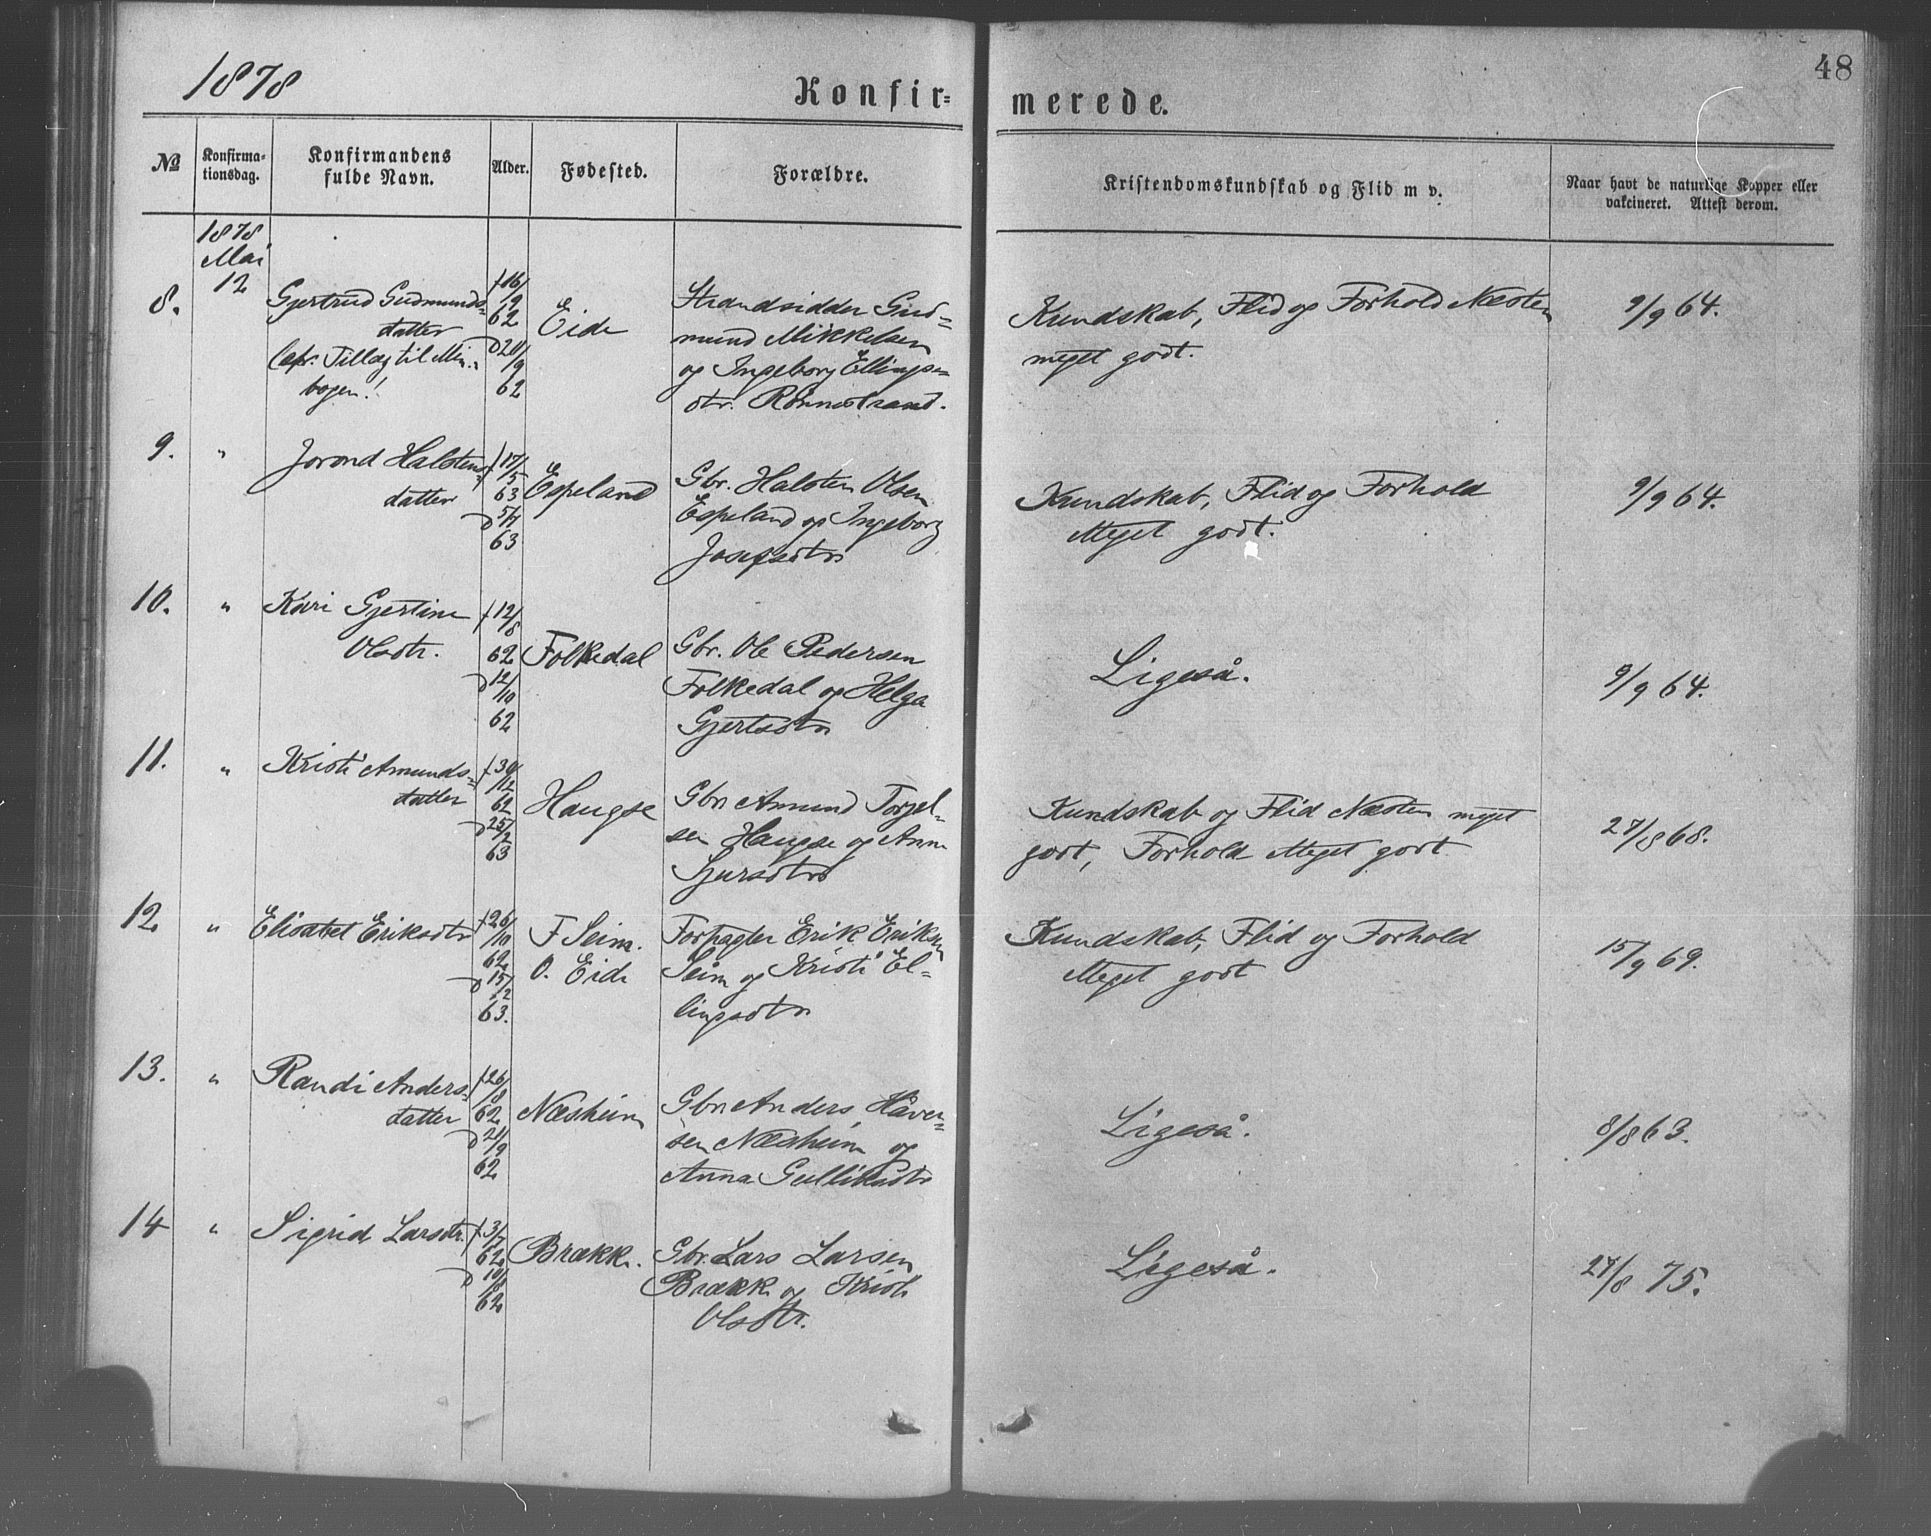 1878
48
Konfir=
merede.
№
Konfirma-
tionsdag.
Konfirmandens
fulde Navn.
Alder.
Fødested.
Forældre.
Kristendomskundskab og Flid m v.
Naar havt de naturlige Kopper eller
vakcineret. Attest derom.
1878
Mai
12
8.
Gjertrud Gudmunds=
datter
Tillæg til Min.
bogen!
f 16/
/9
62
d 21/
/9
62
Eide
Strandsidder Gud=
mund Mikkelsen
og Ingeborg Ellings=
dtr. Rønnestrand.
Kundskab, Flid og Forhold Næsten
meget godt.
9/9 64.
9.
"
Jorond Halstens=
datter
f 17/
/5
63
d 5/7
63
Espeland
Gbr. Halsten Olsen
Espeland og Ingeborg
Josefsdtr
Kundskab, Flid og Forhold
Meget godt.
9/9 64.
10.
"
Kari Gjertine
Olsdtr.
f 12/
/8
62
d 12/
/10
62
Folkedal
Gbr. Ole Pedersen
Folkedal og Helga
Gjertsdtr
Ligeså.
9/9 64.
11.
"
Kristi Amunds=
datter
f 30/
/12
62
d 25/
/2
63
Haugse
Gbr Amund Torjel=
sen Haugse og Anna
Sjursdtr
Kundskab og Flid Næsten meget
godt, Forhold Meget godt
27/8 68.
12
"
Elisabet Eriksdtr
f 26/
/10
62
d 15/
/2
63.
F Seim.
O. Eide
Forpagter Erik Eriksen
Seim og Kristi El=
lingsdtr
Kundskab, Flid og Forhold
Meget godt
15/9 69.
13.
"
Randi Anders=
datter
f 26/
/8
62
d 21/
/9
62
Næsheim
Gbr Anders Håver=
sen Næsheim og
Anna Gulliksdtr
Ligeså.
8/8 63.
14
"
Sigrid Larsdtr.
f 3/7
62
d 10/
/8
62
Brækk.
Gbr. Lars Larsen
Brækk og Kristi
Olsdtr.
Ligeså.
27/8 75.